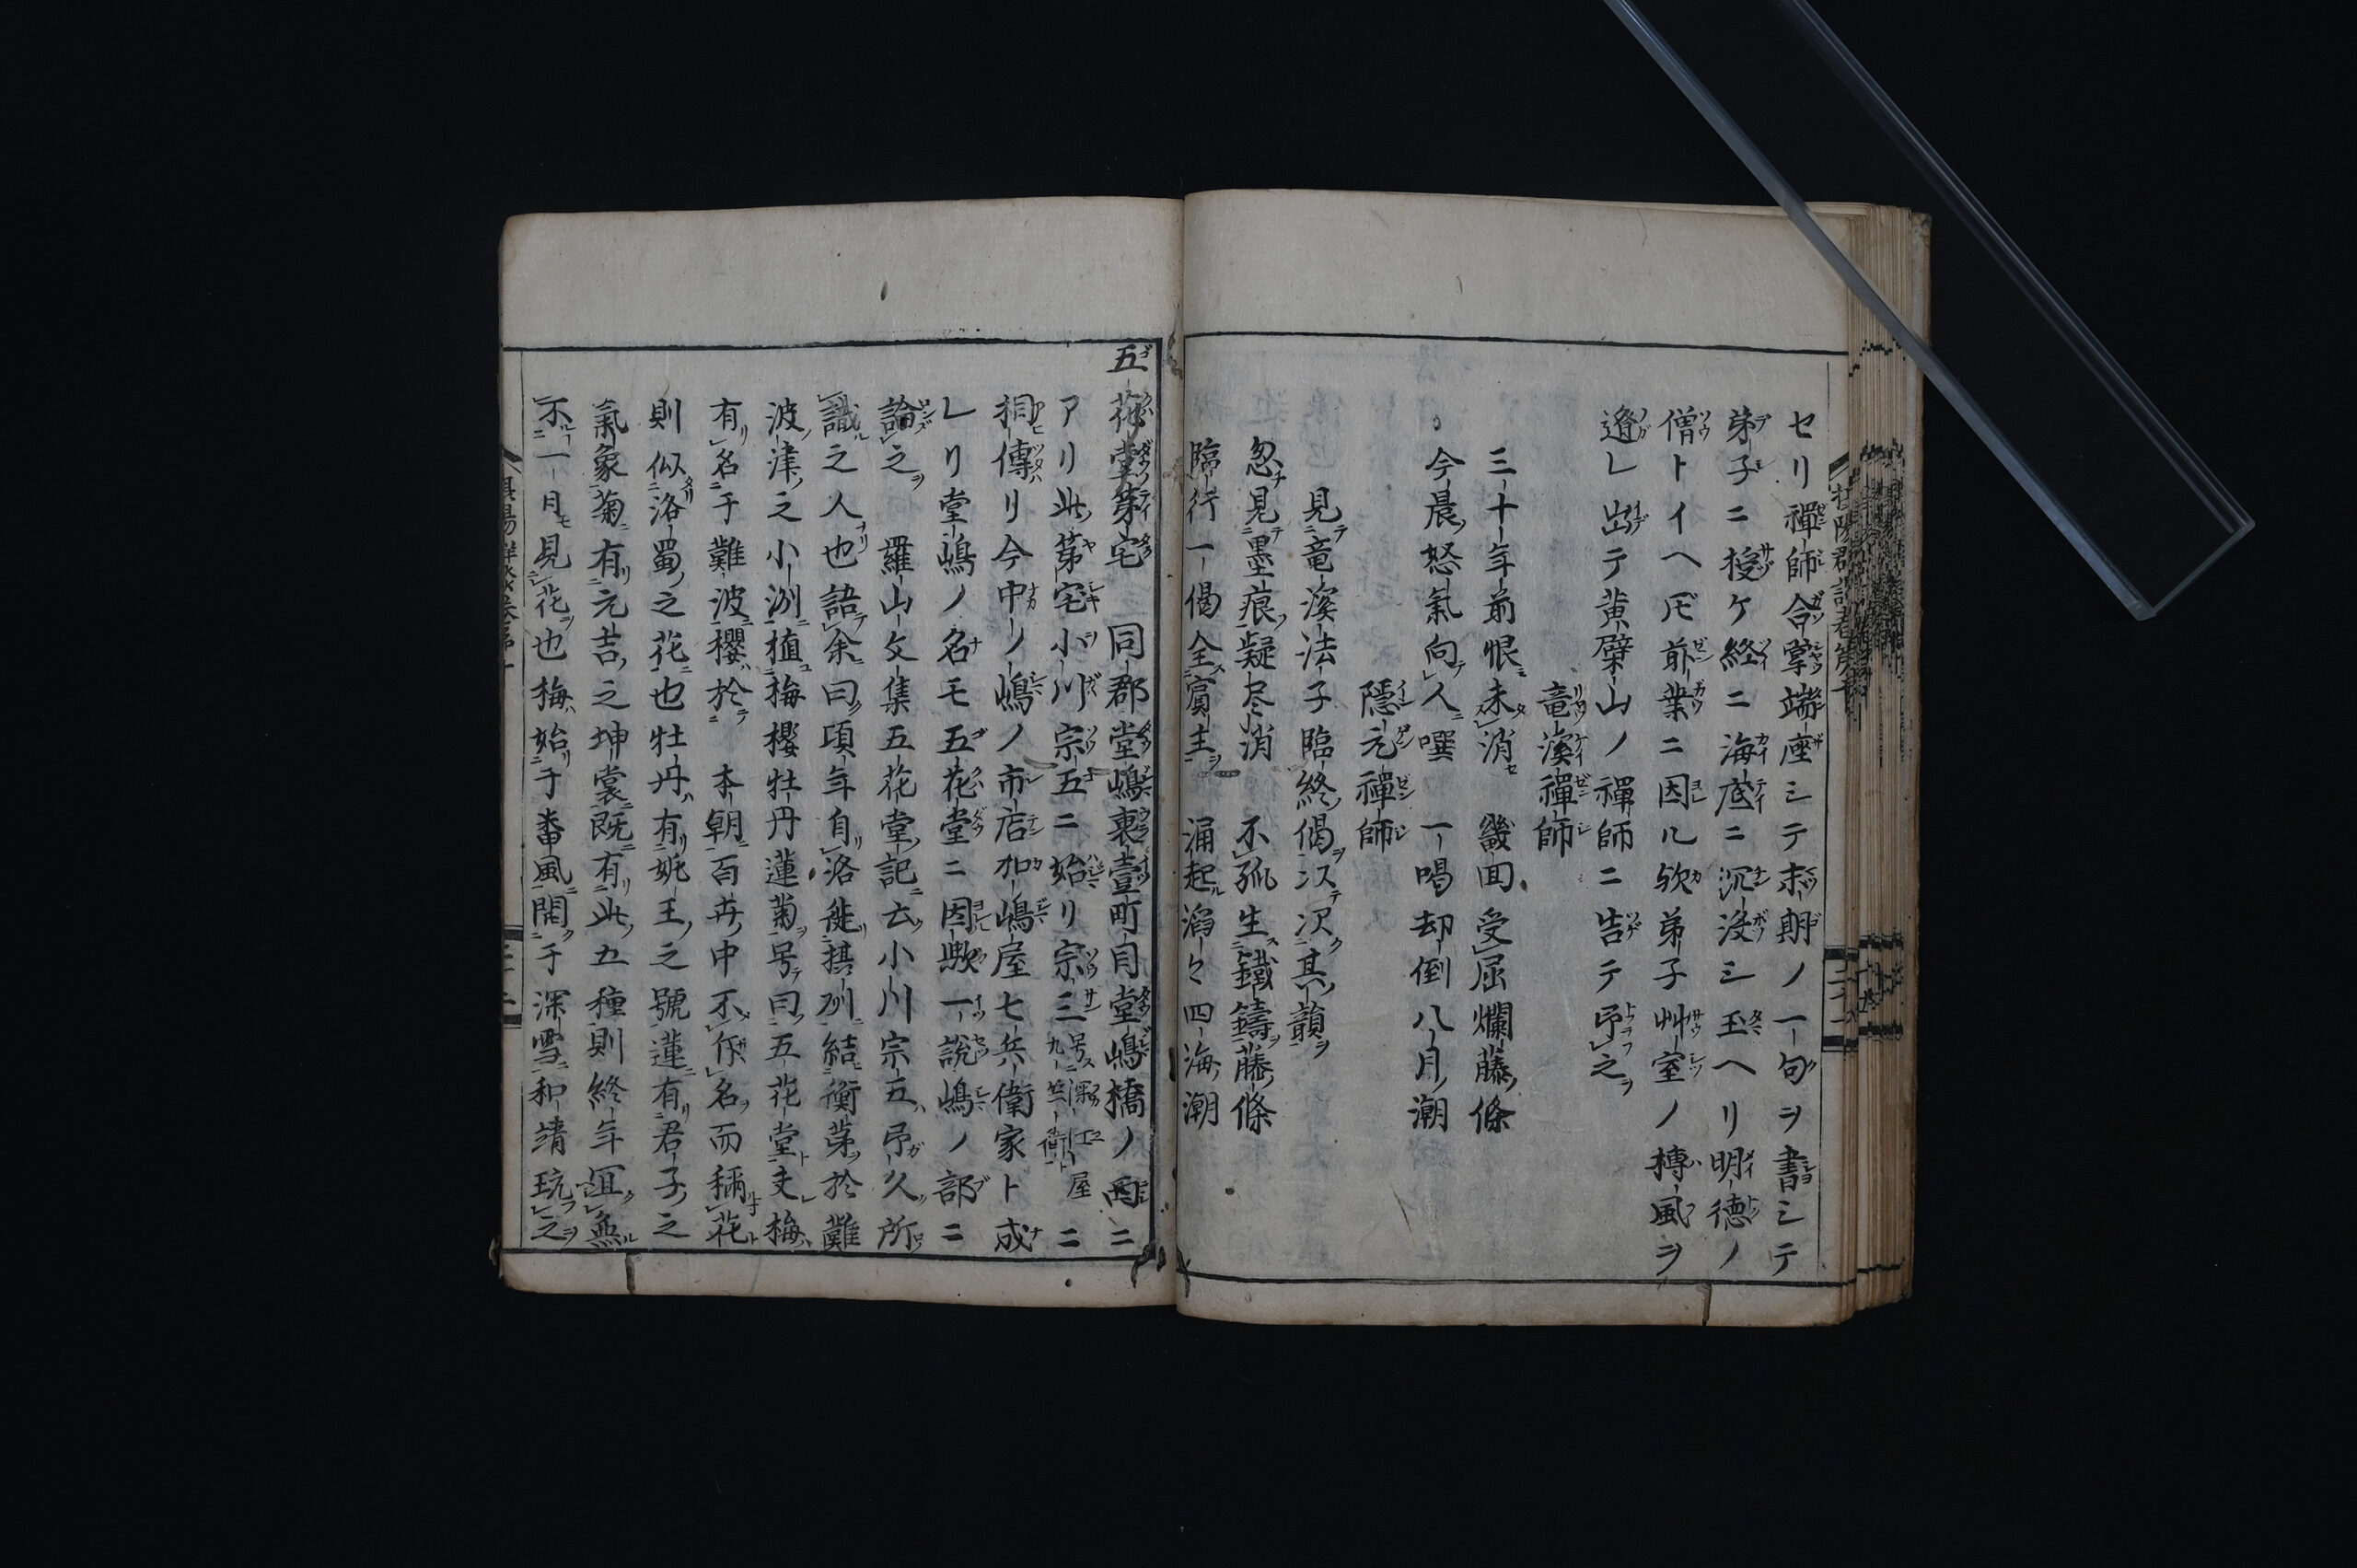 セリ禪師合掌端座シテ末期ノ一句ヲ書シテ
弟子ニ授ケ終ニ海底ニ沉没シ玉ヘリ明徳ノ
僧トイヘ𪜈前業ニ因ル欤弟子艸室ノ摶風ヲ
遁レ出テ黄檗山ノ禪師ニ告テ吊之
竜溪禪師
三十年前恨未消 幾回受屈爛藤條
今晨怒氣向人噀 一喝却倒八月潮
隱元禪師
見竜溪法子臨終偈次其韻
忽見墨痕疑尽消 不孤生鐵鑄藤條
臨行一偈全賓主 涌起滔々四海潮
五花堂第宅 同郡堂嶋裏壹町目堂嶋橋ノ西ニ
アリ此第宅小川宗五ニ始リ宗三ニ
相傳リ今中ノ嶋ノ市店加嶋屋七兵衛家ト成
レリ堂嶋ノ名モ五花堂ニ因歟一説嶋ノ部ニ
論之 羅山文集五花堂記云小川宗五吊久所
識之人也語余曰頃年自洛徙摂州結衡茅於難
波津之小洲植梅櫻牡丹蓮菊号曰五花堂夫梅
有名于難波櫻於 本朝百卉中不斥名而稱花
則似洛蜀之花也牡丹有姚王之號蓮有君子之
氣象菊有元吉之坤裳既有此五種則終年冝無
不一月見花也梅始于番風開于深雪和靖玩之